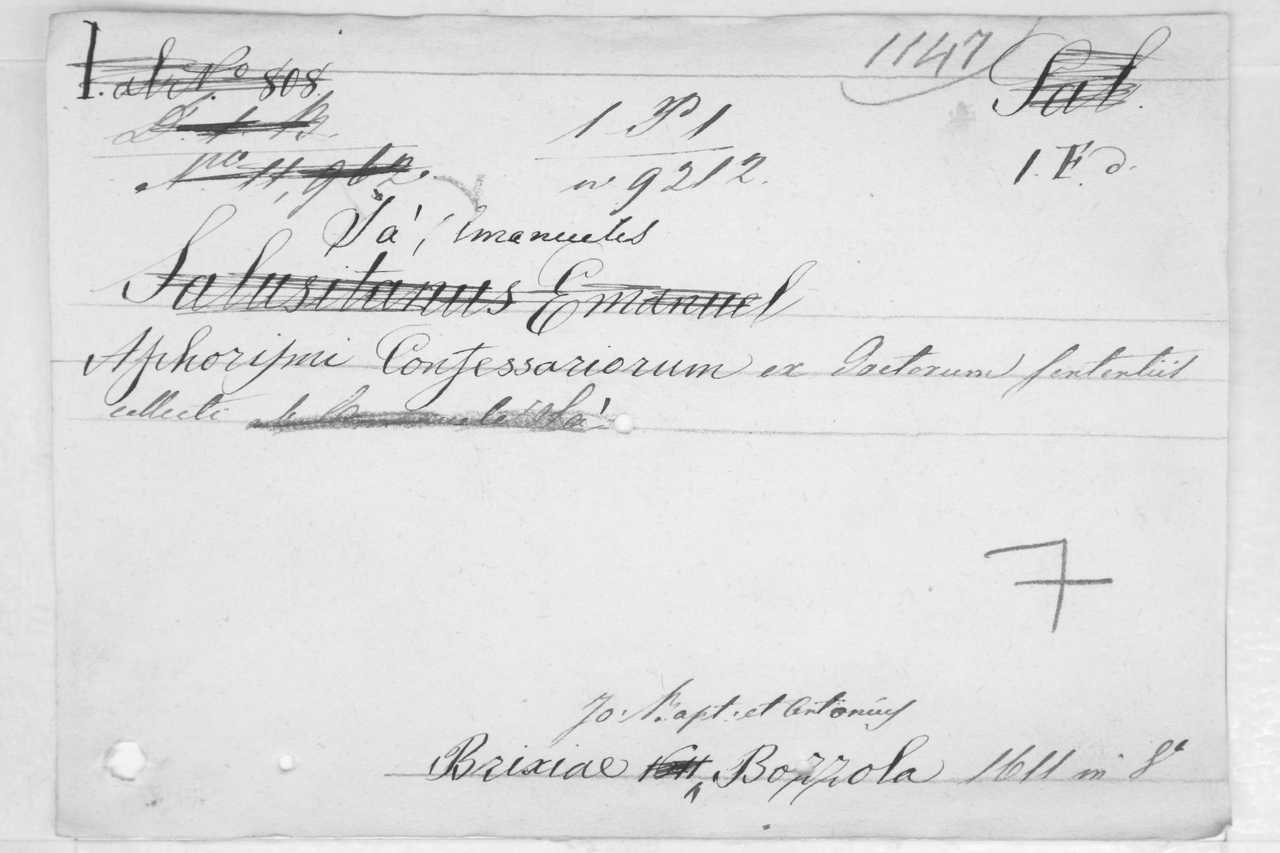 1147
I. ab. No. 808.
Sal.
D. 1. B.
1 P 1
No. 11,962.
n. 9212.
1. Ed.
Sá, Emanuelis
Salusitanus Emanuel
Aphorismi Confessariorum ex Doctorum sententiis
collecti
7
Jo: Bapt: et Antonius
Brixiae 1611 Bozzola 1611 in 8°